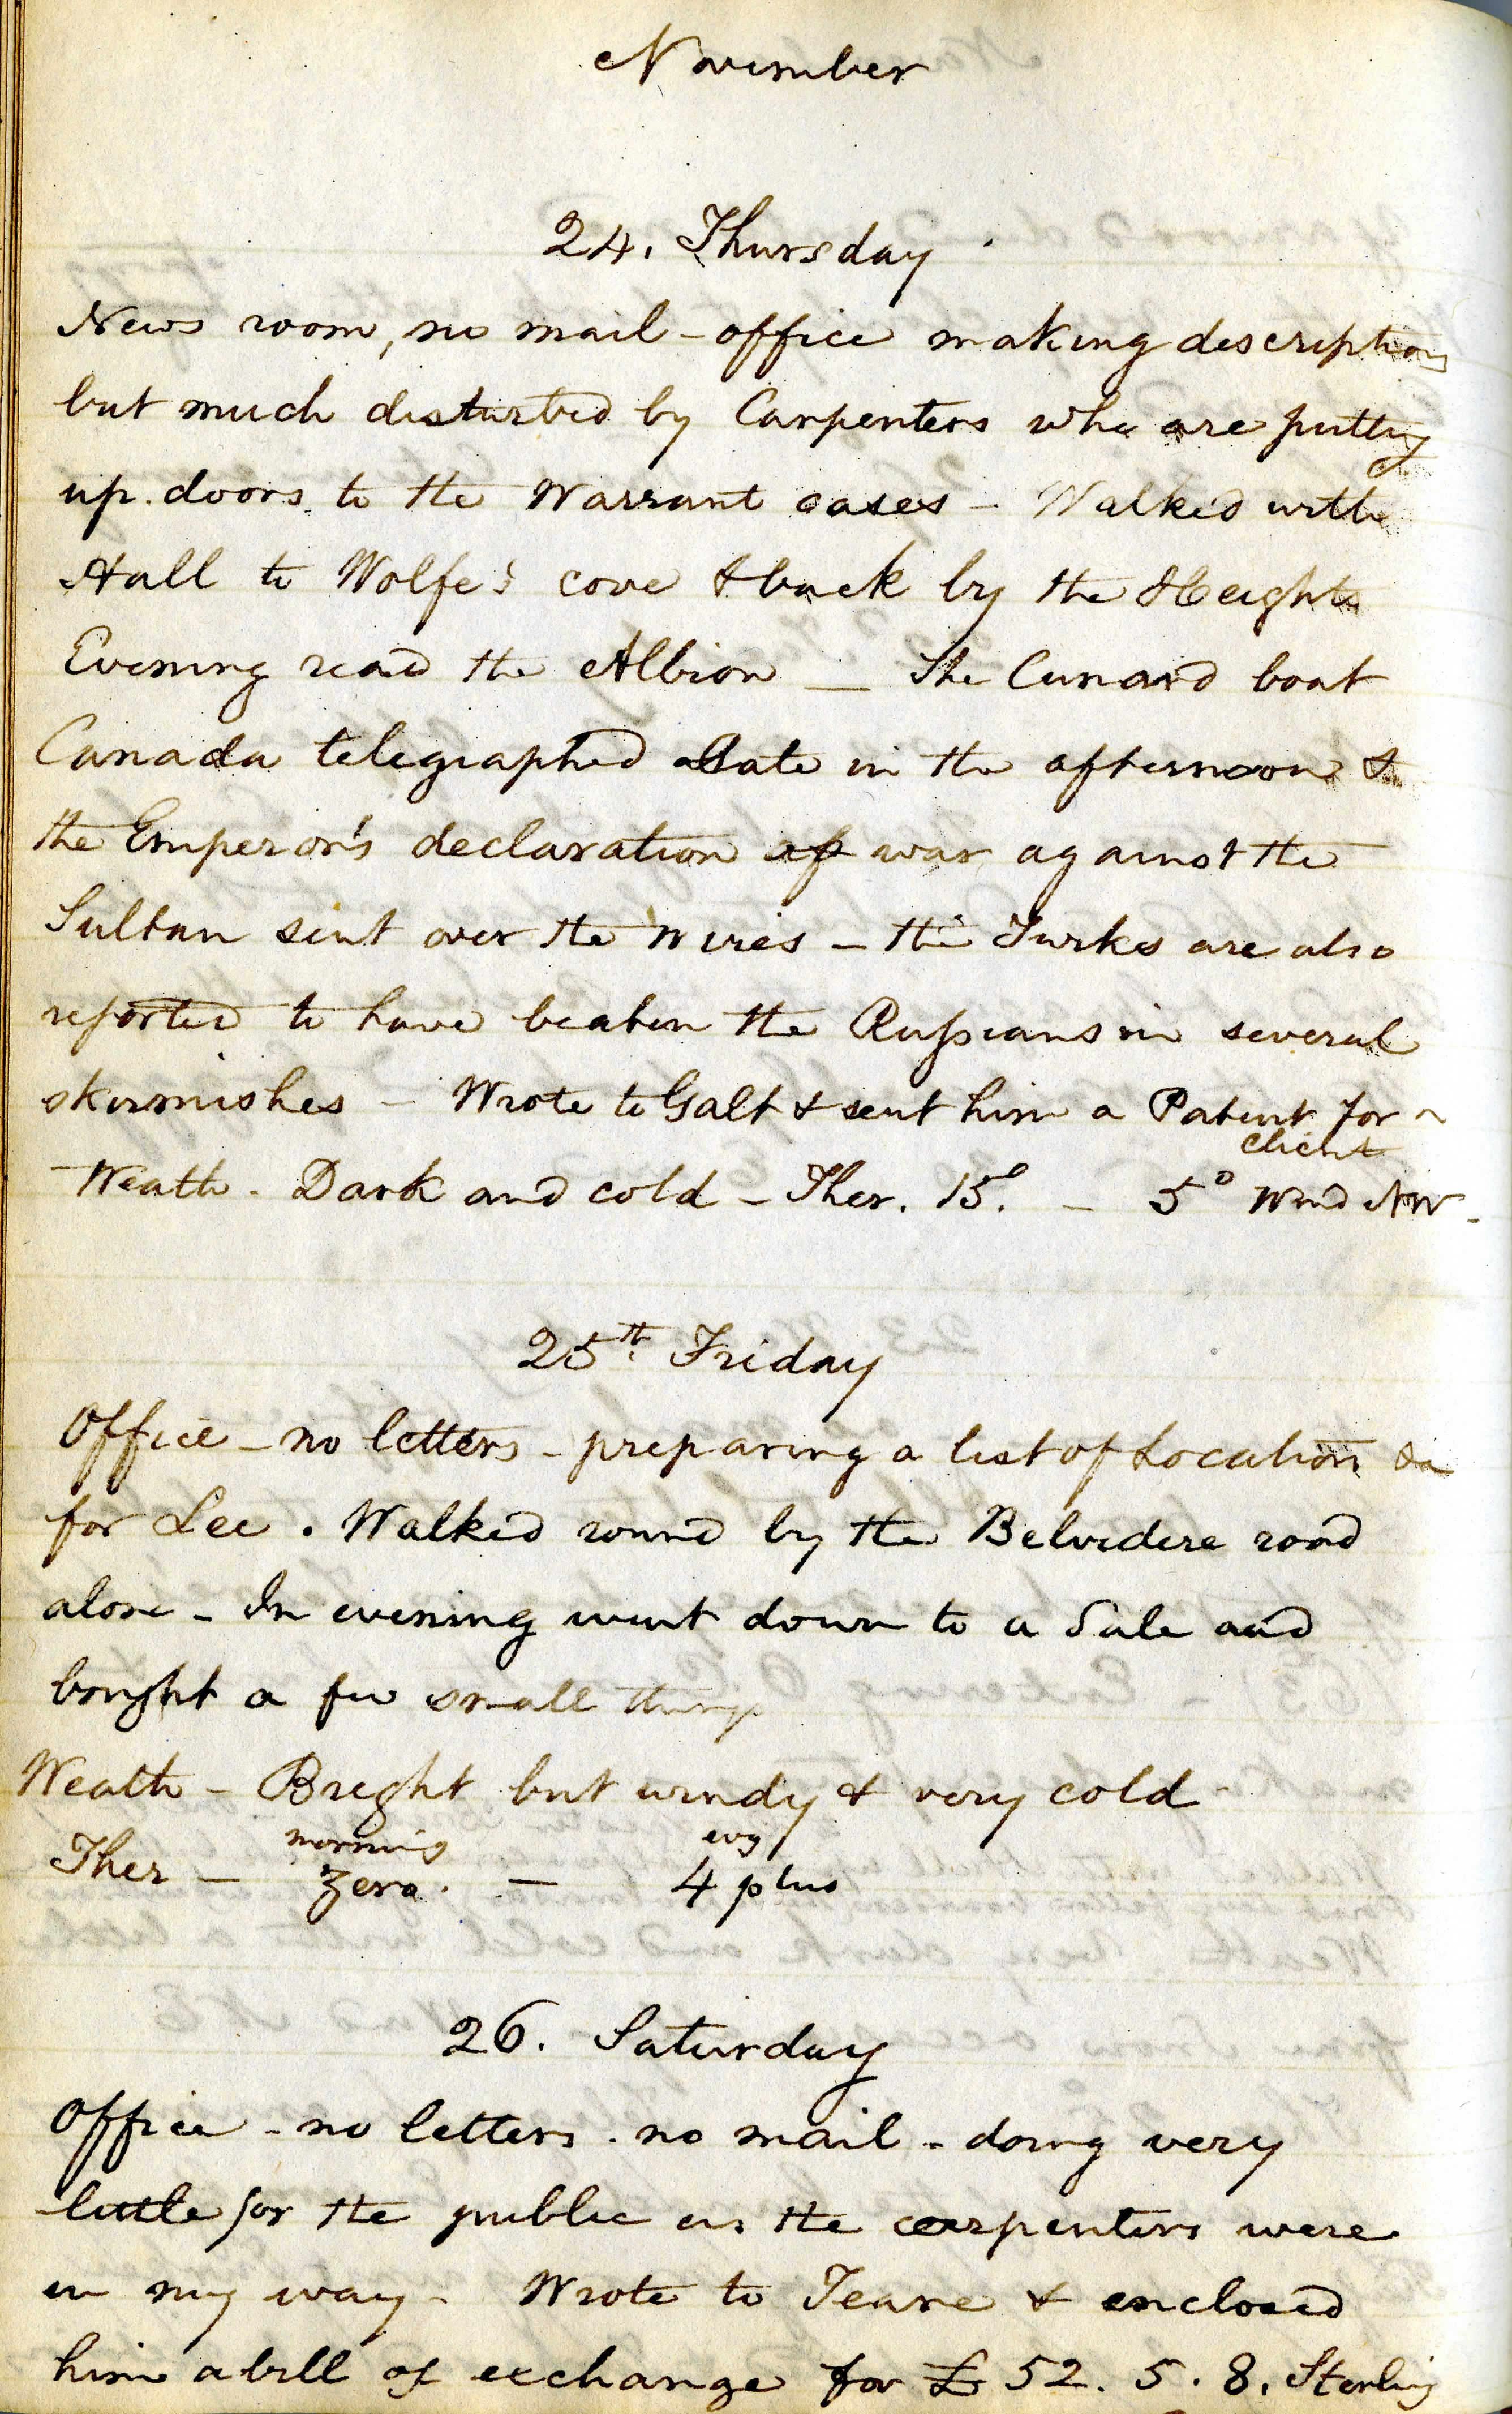 November
24. Thursday
News room, no mail - office making descriptions
but much disturbed by Carpenters who are putting
up doors to the Warrant cases - Walked with
Hall to Wolfe's cove & back by the Heights
Evening read the Albion — The Cunard boat
Canada telegraphed late in the afternoon &
the Emperor's declaration of war against the
Sultan sent over the wires - the Turks are also
reported to have beaten the Russians in several
skirmishes - Wrote to Galt & sent him a Patent for a
client
Weath - Dark and cold - Ther. 15° - 5° Wind NW -
25th Friday
Office - no letters - preparing a list of Location &a
for Lee. Walked round by the Belvedere road
alone - In evening went down to a Sale and
bought a few small things
Weath - Bright but windy & very cold -
morning evg
Ther - Zero. - 4 plus
26. Saturday
Office - no letters - no mail - doing very
little for the public as the carpenters were
in my way - Wrote to Teare & enclosed
him a bill of exchange for £ 52. 5. 8. Sterling